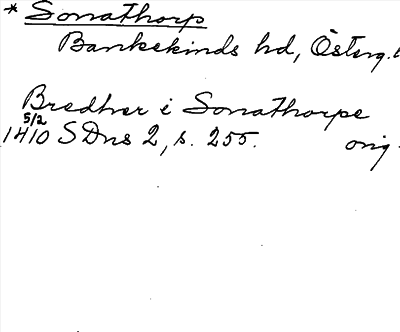 * Sonathorp
Bankekinds hd, Österg.
Bredher i Sonathorpe
5/2
1410 SDns 2, s. 255. orig.